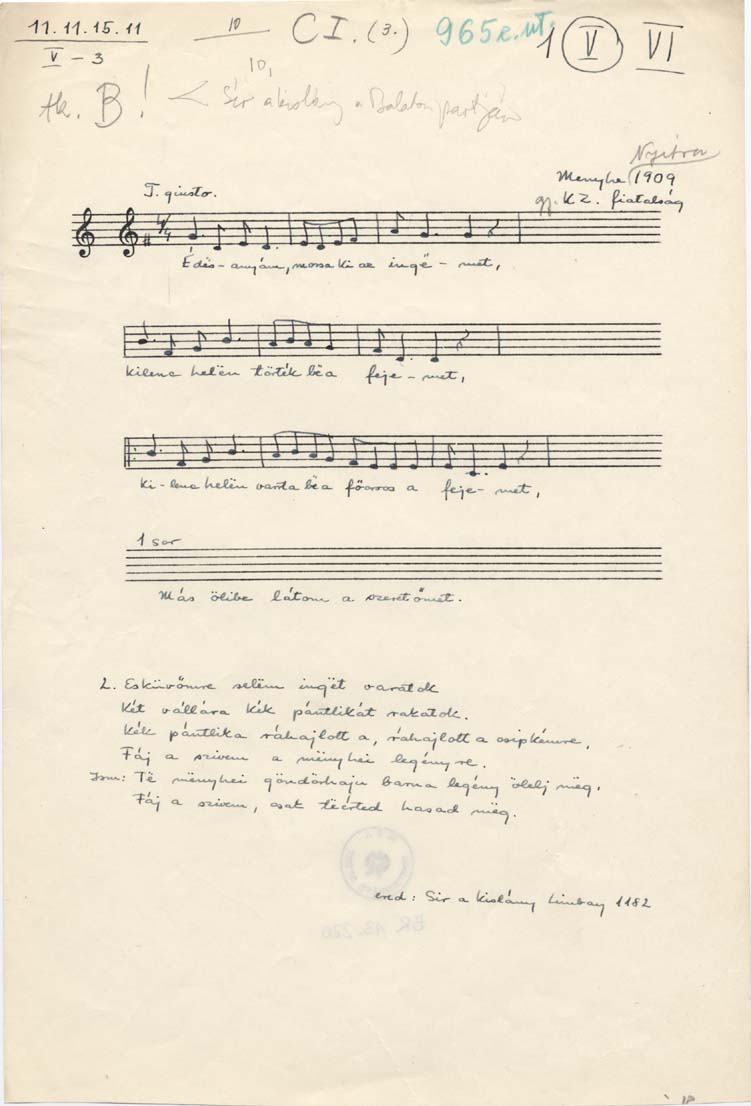 11. 11. 15. 11
V – 3
10
CI. (3.)
965 e. ut.
1 V VI
10,
tk. B! < Sír a kislány a Balaton partján
Nyitra
Menyhe 1909
gy. K Z. fiatalság
T. giusto.
4/4
Édës-anyám, mossa ki az ingë-met,
Kilenc helën törték bëa feje-met,
Ki-lenc helën varrta bëa főorvos a feje-met,
1 sor
Más ölibe látom a szeretőmet.
2. Esküvőmre selëm ingët varatok
Két vállára kék pántlikát rakatok.
Kék pántlika ráhajlott a, ráhajlott a csipkémre,
Fáj a szivem a mënyhei legényre.
Ism: Të mënyhei göndörhaju barna legény ölelj mëg,
Fáj a szivem, csak tëérted hasad mëg.
ered: Sir a kislány Limbay 1182
BR 13.220